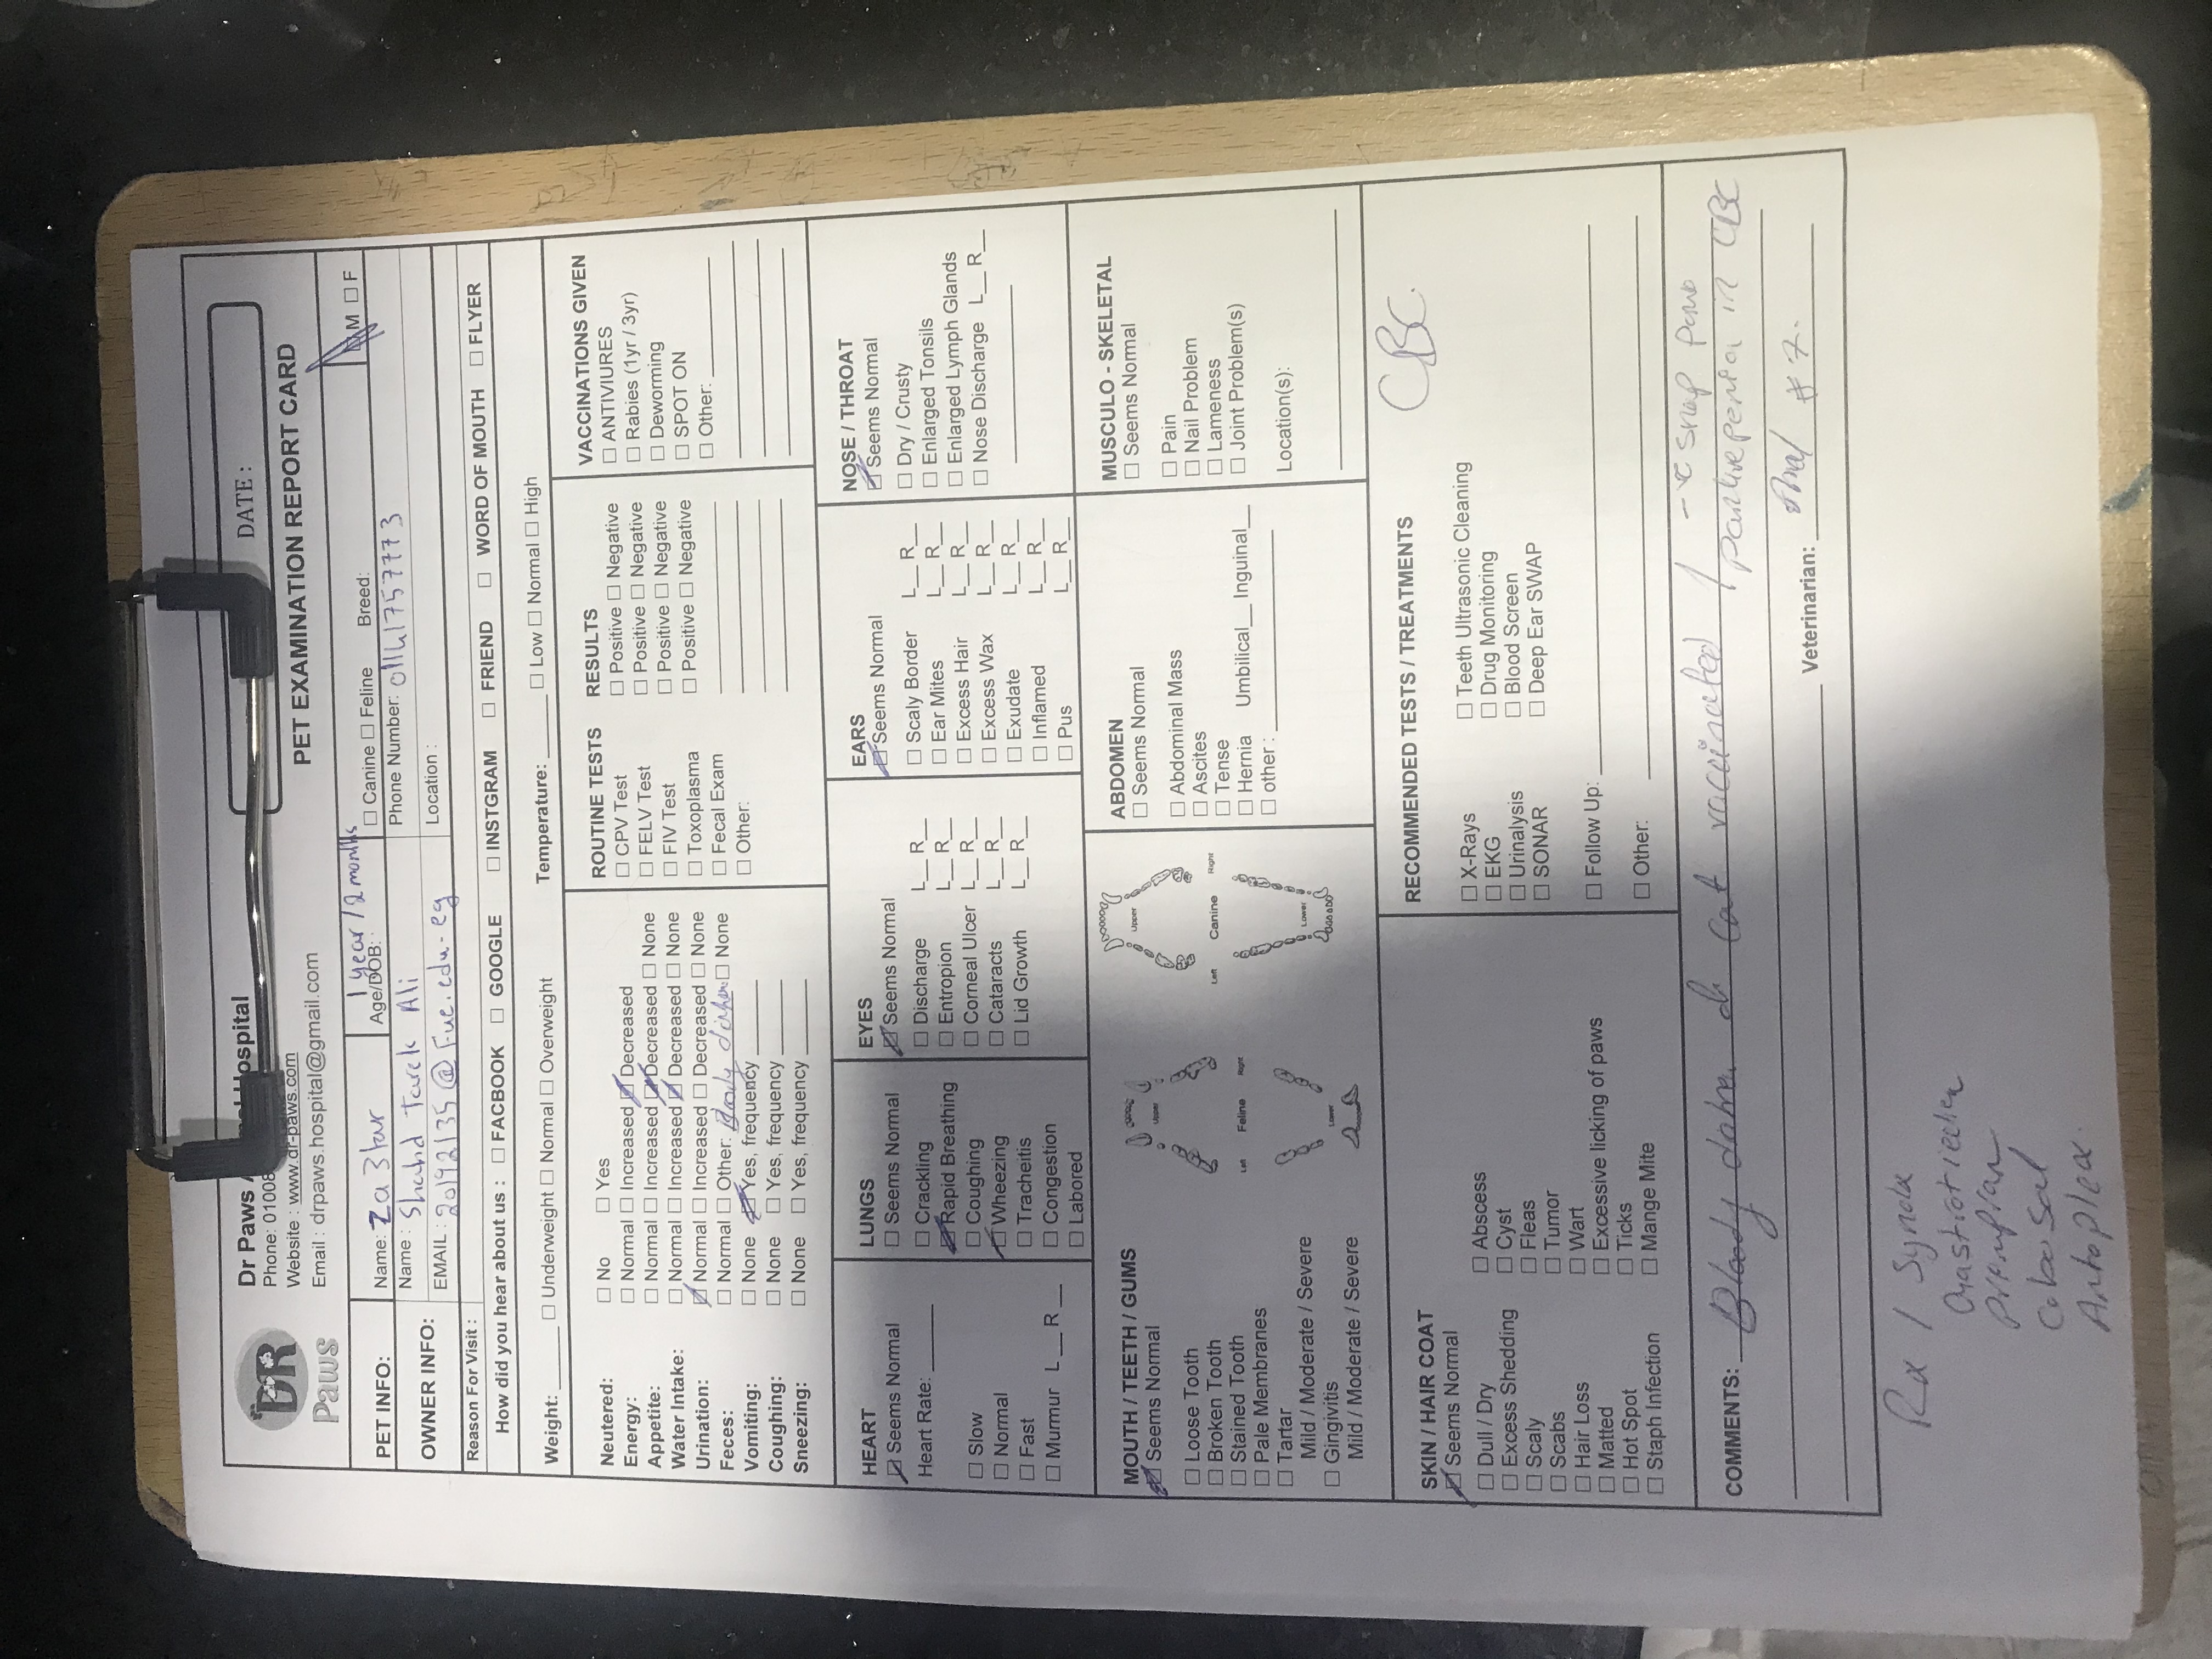 DR
Paws
Dr Paws
Hospital
Phone: 01008
Website : www.dr-paws.com
Email : drpaws.hospital@gmail.com
DATE :
PET EXAMINATION REPORT CARD
PET INFO: Name: Za3tar Age/DOB: 1 year / 2 months □ Canine □ Feline Breed: M □ F
OWNER INFO: Name : Shahd Tarek Ali Phone Number:
EMAIL : 20192135@Fue.edu.eg Location :
Reason For Visit :
How did you hear about us : □ FACBOOK □ GOOGLE □ INSTGRAM □ FRIEND □ WORD OF MOUTH □ FLYER
Weight: □ Underweight □ Normal □ Overweight Temperature: □ Low □ Normal □ High
Neutered: □ No □ Yes
Energy: □ Normal □ Increased ☑ Decreased
Appetite: □ Normal □ Increased ☑ Decreased □ None
Water Intake: □ Normal □ Increased ☑ Decreased □ None
Urination: ☑ Normal □ Increased □ Decreased □ None
Feces: □ Normal □ Other: Bloody □ None
Vomiting: □ None ☑ Yes, frequency
Coughing: □ None □ Yes, frequency
Sneezing: □ None □ Yes, frequency
ROUTINE TESTS
□ CPV Test
□ FELV Test
□ FIV Test
□ Toxoplasma
□ Fecal Exam
□ Other:
RESULTS
□ Positive □ Negative
□ Positive □ Negative
□ Positive □ Negative
□ Positive □ Negative
VACCINATIONS GIVEN
□ ANTIVIURES
□ Rabies (1yr / 3yr)
□ Deworming
□ SPOT ON
□ Other:
HEART
☑ Seems Normal
Heart Rate:
□ Slow
□ Normal
□ Fast
□ Murmur L__R__
LUNGS
□ Seems Normal
□ Crackling
☑ Rapid Breathing
□ Coughing
☑ Wheezing
□ Tracheitis
□ Congestion
□ Labored
EYES
☑ Seems Normal
□ Discharge L__R__
□ Entropion L__R__
□ Corneal Ulcer L__R__
□ Cataracts L__R__
□ Lid Growth L__R__
EARS
☑ Seems Normal
□ Scaly Border L__R__
□ Ear Mites L__R__
□ Excess Hair L__R__
□ Excess Wax L__R__
□ Exudate L__R__
□ Inflamed L__R__
□ Pus L__R__
NOSE / THROAT
☑ Seems Normal
□ Dry / Crusty
□ Enlarged Tonsils
□ Enlarged Lymph Glands
□ Nose Discharge L__R__
MOUTH / TEETH / GUMS
☑ Seems Normal
□ Loose Tooth
□ Broken Tooth
□ Stained Tooth
□ Pale Membranes
□ Tartar
Mild / Moderate / Severe
□ Gingivitis
Mild / Moderate / Severe
Upper
Left Feline Right
Lower
Upper
Left Canine Right
Lower
ABDOMEN
□ Seems Normal
□ Abdominal Mass
□ Ascites
□ Tense
□ Hernia Umbilical__Inguinal__
□ other :
MUSCULO - SKELETAL
□ Seems Normal
□ Pain
□ Nail Problem
□ Lameness
□ Joint Problem(s)
Location(s):
SKIN / HAIR COAT
☑ Seems Normal
□ Dull / Dry
□ Excess Shedding
□ Scaly
□ Scabs
□ Hair Loss
□ Matted
□ Hot Spot
□ Staph Infection
□ Abscess
□ Cyst
□ Fleas
□ Tumor
□ Wart
□ Excessive licking of paws
□ Ticks
□ Mange Mite
RECOMMENDED TESTS / TREATMENTS
□ X-Rays
□ EKG
□ Urinalysis
□ SONAR
□ Teeth Ultrasonic Cleaning
□ Drug Monitoring
□ Blood Screen
□ Deep Ear SWAP
□ Follow Up:
□ Other:
CBC.
COMMENTS: Bloody Cat vaccinated / -ve snap
in CBC
Veterinarian:
Rx /